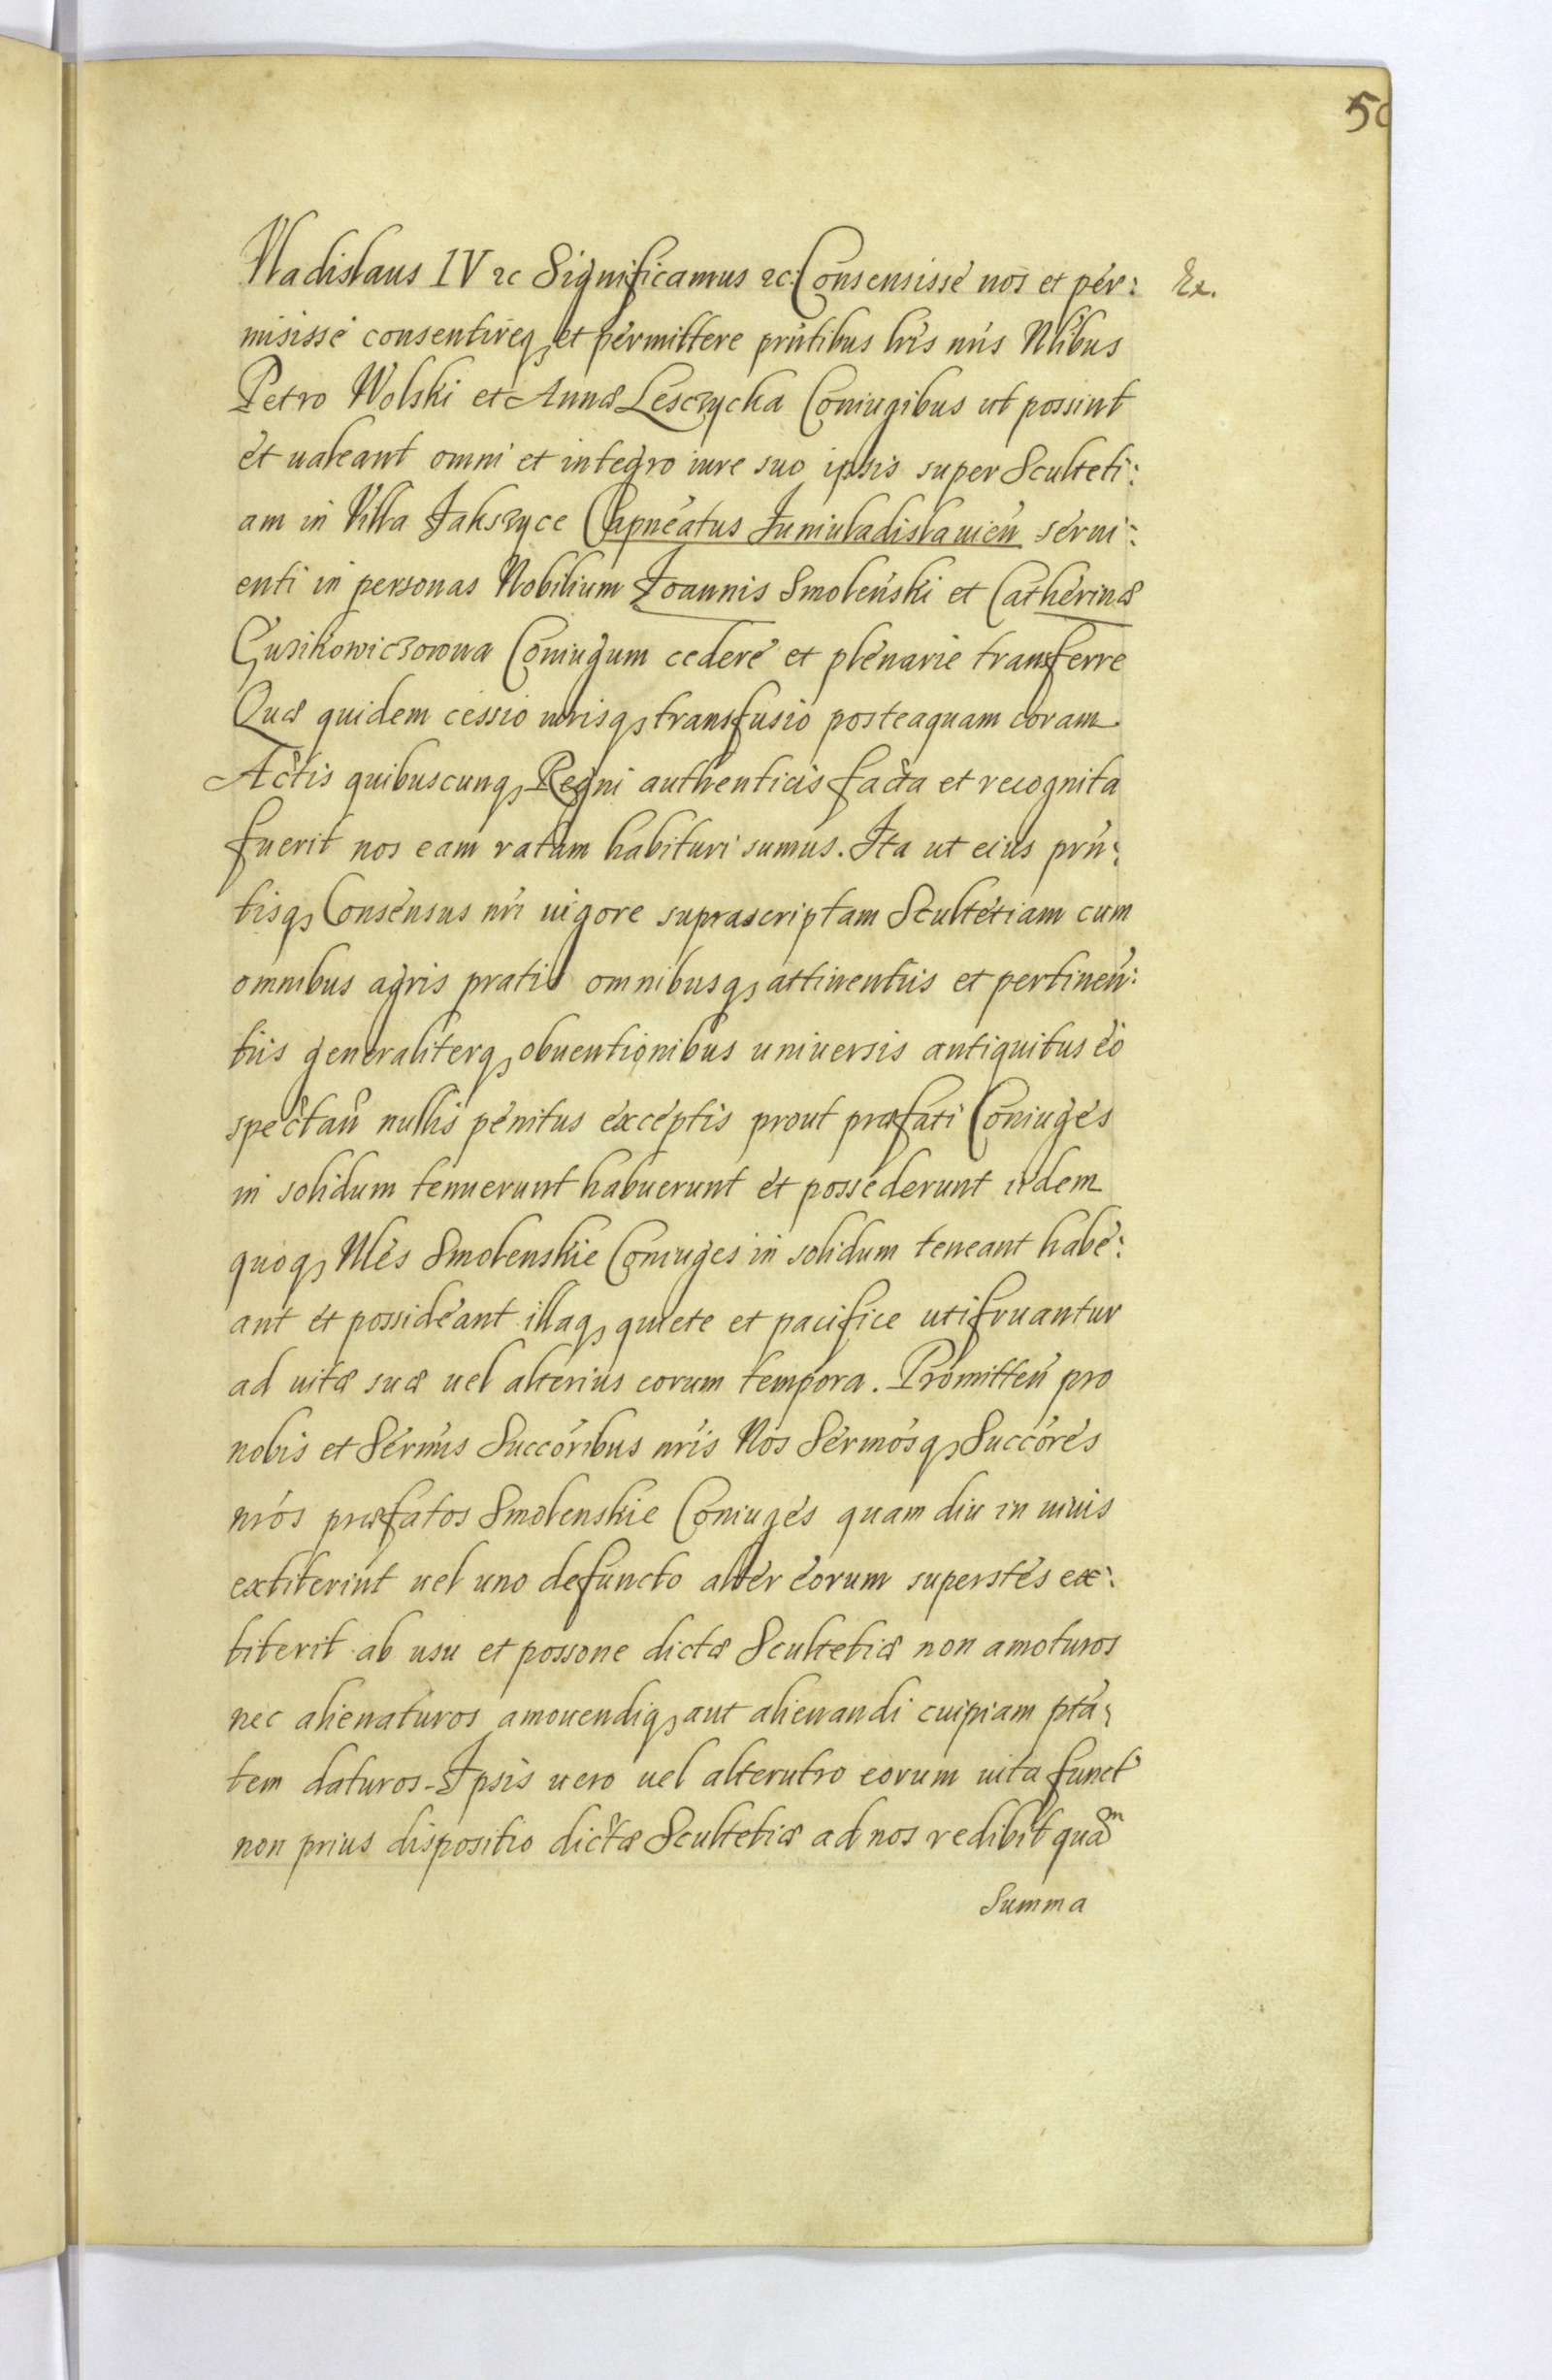 50
Vladislaus IV &c Significamus &c: Consensisse nos et per: Ex.
misisse consentireq, et permittere prñtibus lr̃is nr̃is Nl̃ibus
Petro Wolski et Annæ Lesczycka Coniugibus ut possint
et ualeant omni et integro iure suo ipsis super Sculteti:
am in Villa Jakszyce Capñeatus Juniuladislauień serui:
enti in personas Nobilium Joannis Smoleński et Catherinæ
Guzikowiczowna Coniugum cedere et plenarie transferre
Quæ quidem cessio iurisq, transfusio posteaquam coram
Actis quibuscunq, Regni authenticis facta et recognita
fuerit nos eam ratam habituri sumus. Ita ut eius prñ:
tisq, Consensus nr̃i uigore suprascriptam Scultetiam cum
omnibus agris pratis omnibusq, attinentiis et pertineń:
tiis generaliterq, obuentionibus uniuersis antiquitus eo
spectań nullis penitus exceptis prout præfati Coniuges
in solidum tenuerunt habuerunt et possederunt iidem
quoq, Nl̃es Smolenskie Coniuges in solidum teneant habe:
ant et possideant illaq, quiete et pacifice utifruantur
ad uitæ suæ uel alterius eorum tempora. Promitteń pro
nobis et Serm̃is Succõribus nr̃is Nos Serm̃osq, Succõres
nr̃os præfatos Smolenskie Coniuges quam diu in uiuis
extiterint uel uno defuncto alter eorum superstes ex:
titerit ab usu et possone dictæ Scultetiæ non amoturos
nec alienaturos amouendiq, aut alienandi cuipiam ptã:
tem daturos. Ipsis uero uel alterutro eorum uita funct
non prius dispositio dictæ Scultetiæ ad nos redibit quam
Summa